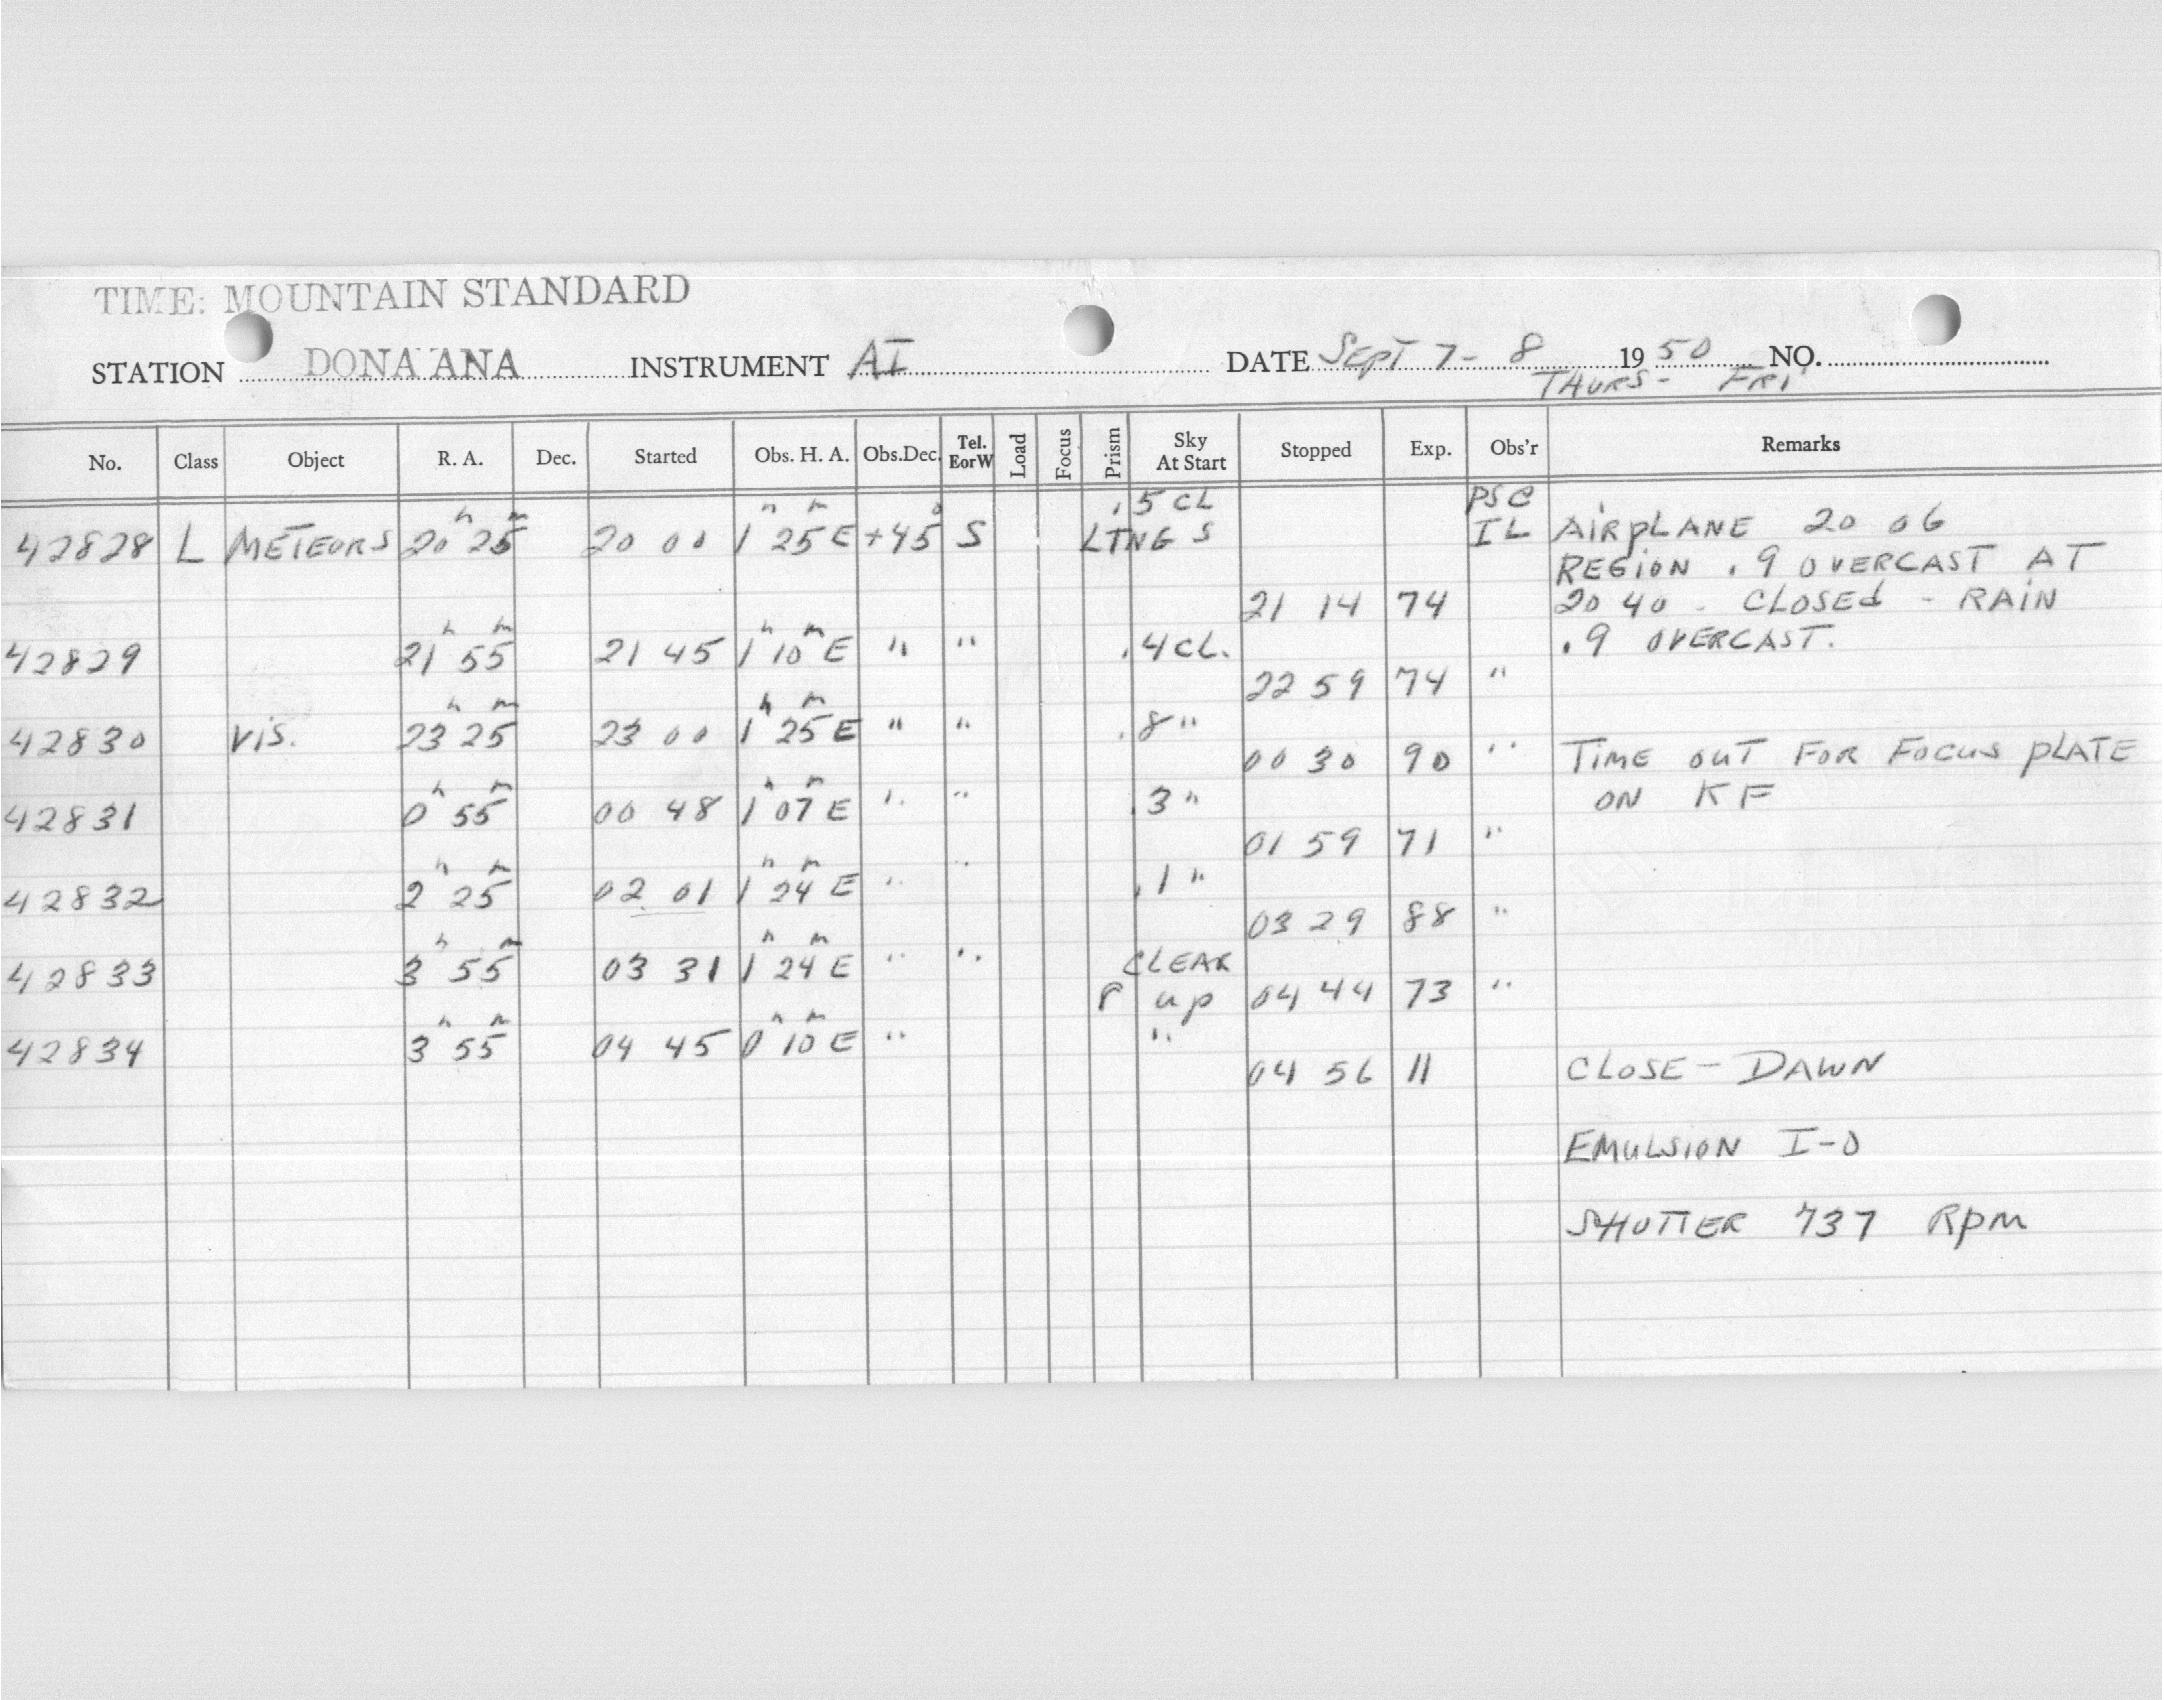 TIME: MOUNTAIN STANDARD
STATION DONA ANA INSTRUMENT AI DATE SEPT 7-8 1950 NO.
THURS - FRI
No. Class Object R. A. Dec. Started Obs. H. A. Obs.Dec. Tel. EorW Load Focus Prism Sky At Start Stopped Exp. Obs'r Remarks
.5 CL PSC
42828 L METEORS 20h 25m 20 00 1h 25m E +45° S LTNG S IL AIRPLANE 20 06
REGION .9 OVERCAST AT
21 14 74 20 40 - CLOSEd - RAIN
42829 21h 55m 21 45 1h 10m E " " .4 CL. .9 OVERCAST.
22 59 74 "
42830 VIS. 23h 25m 23 00 1h 25m E " " .8 "
00 30 90 " TIME OUT FOR FOCUS PLATE
42831 0h 55m 00 48 1h 07m E " " .3 " ON KF
01 59 71 "
42832 2h 25m 02 01 1h 24m E " " .1 "
03 29 88 "
42833 3h 55m 03 31 1h 24m E " " CLEAR
up 04 44 73 "
42834 3h 55m 04 45 0h 10m E " "
04 56 11 CLOSE - DAWN
EMULSION I-O
SHUTTER 737 RPM